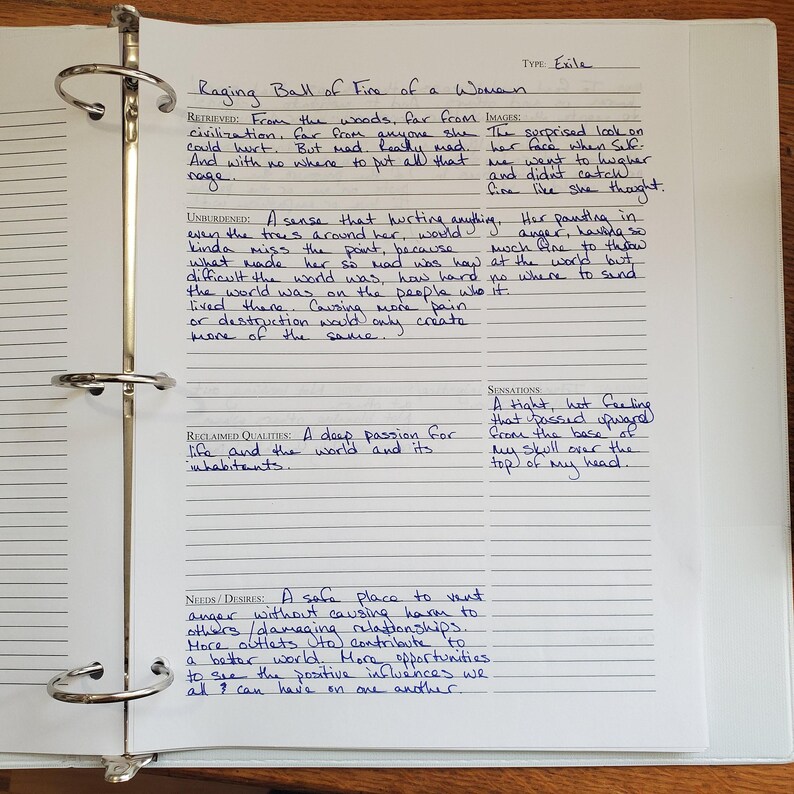 TYPE: Exile
Raging Ball of Fire of a Woman
RETRIEVED: From the woods, far from
civilization, far from anyone she
could hurt. But mad. Really mad.
And with no where to put all that
rage.
IMAGES:
The surprised look on
her face when Self-
me went to hug her
and didn't catch
fire like she thought.
Her panting in
anger, having so
much fire to throw
at the world but
no where to send
it.
UNBURDENED: A sense that hurting anything,
even the trees around her, would
kinda miss the point, because
what made her so mad was how
difficult the world was, how hard
the world was on the people who
lived there. Causing more pain
or destruction would only create
more of the same.
SENSATIONS:
A tight, hot feeling
that passed upward
from the base of
my skull over the
top of my head.
RECLAIMED QUALITIES: A deep passion for
life and the world and its
inhabitants.
NEEDS / DESIRES: A safe place to vent
anger without causing harm to
others/damaging relationships.
More outlets to contribute to
a better world. More opportunities
to see the positive influences we
all can have on one another.